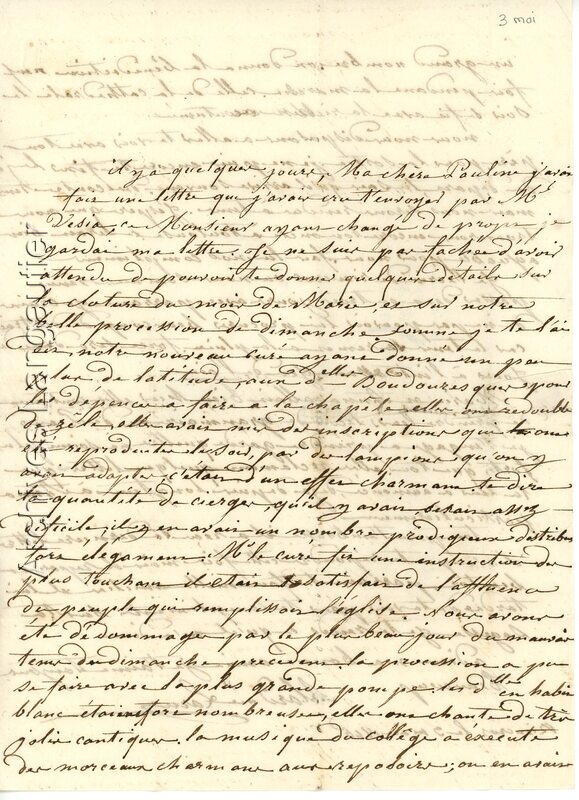 3 moi
il y a quelques jours, Ma chère Pauline j'avais
fait une lettre que j'avais cru t'envoyer par Mr
Vesia, ce Monsieur ayant changé de projet je
gardai ma lettre. Je ne suis pas fachée d'avoir
attendu de pouvoir te donner quelques details sur
la cloture du mois de Marie, et sur notre
belle procession de dimanche. comme je te l'ai
dit, notre nouveau curé ayant donné un peu
plus de latitude, aux dlles Boudouresques pour
la depence a faire a la chapèle elles ont redoublé
de zêle, elle avait mis des inscriptions qui
été reproduites le soir, par des lampions qu'on y
avait adapté, c'était d'un effet charmant te dire
la quantité de cierges, qu'il y avait serait assez
dificile, il y en avait un nombre prodigieux distribué
fort élégament. Mr le curé fit une instruction des
plus touchant il était satisfait de l'affluence
du peuple qui remplissait l'église. Nous avons
été dédommagés par le plus beau jour du mauvais
tems du dimanche precedent. la procession a pu
se faire avec la plus grande pompe. les dlles en habit
blanc étaient fort nombreuse, elles ont chanté de très
jolis cantiques. la musique du collège a executé
des morceaux charmant aux reposoirs; on en avait
Archives Langautier